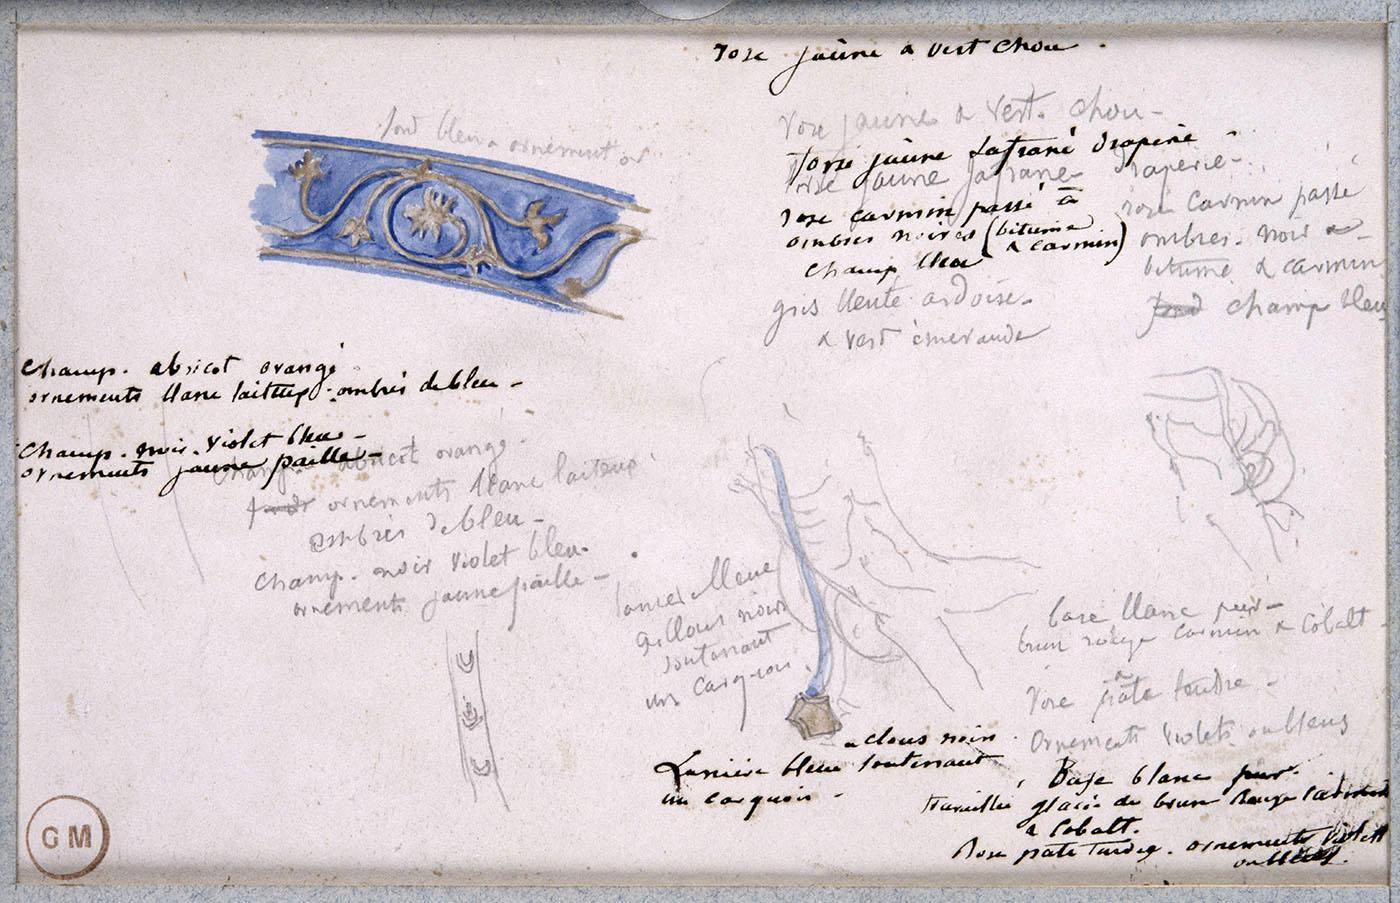 rose jaune & vert chou.
rose jaune & vert chou
Torse jaune safrané draperie
Torse jaune safrané draperie
rose carmin passé à
ombres noires (bitume
& carmin)
champ bleu
rose carmin passé
ombres noir &
bitume & carmin
fond champ bleu
gris bleuté ardoise
& vert émeraude
fond bleu & ornement or
champ. abricot orangé
ornements blanc laiteux ombrés de bleu
champ. noir. violet bleu
ornements jaune paille
champ. abricot orangé.
fond ornements blanc laiteux
ombrés de bleu
champ. noir violet bleu.
ornements jaune paille
bleue
clous noirs
soutenant
un carquois.
base blanc pur
brun rouge carmin & cobalt
rose pâte tendre
ornements violets ou bleus
à clous noirs
Lanière bleue soutenant
un carquois
Base blanc pur.
travaillé glacé de brun rouge
& cobalt.
Rose pâte tendre. ornements violets
ou bleus.
GM